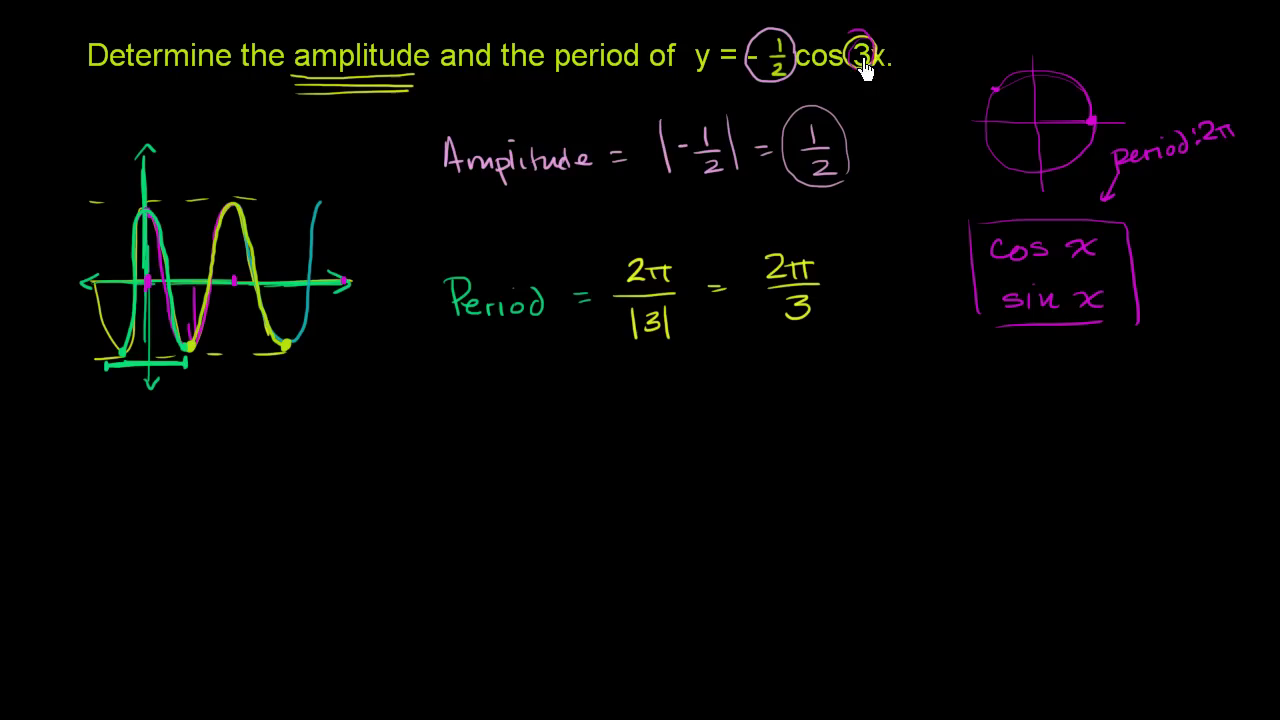 Determine the amplitude and the period of y = - 1/2 cos 3x.
Amplitude = |-1/2| = 1/2
period: 2π
cos x
sin x
Period = 2π/|3| = 2π/3